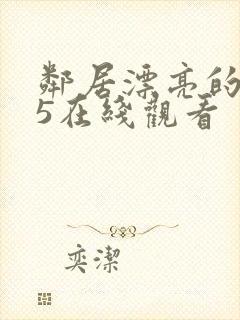 鄰居漂亮的
5在綫觀看
奕潔